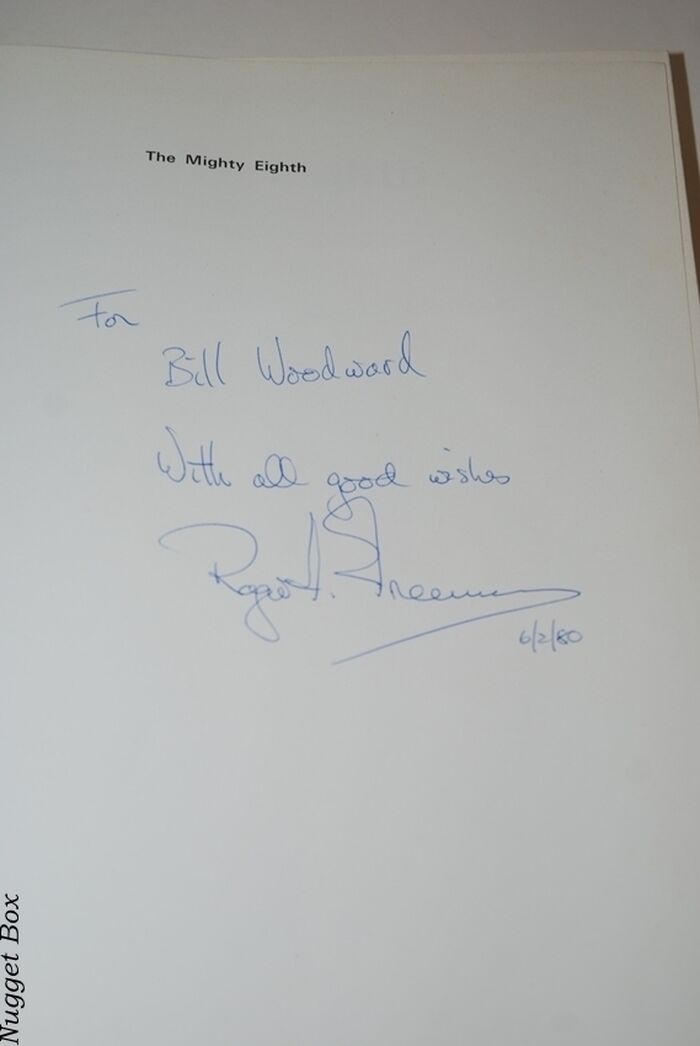 The Mighty Eighth
For
Bill Woodward
With all good wishes
Roger A. Freeman
6/2/80
Nugget Box